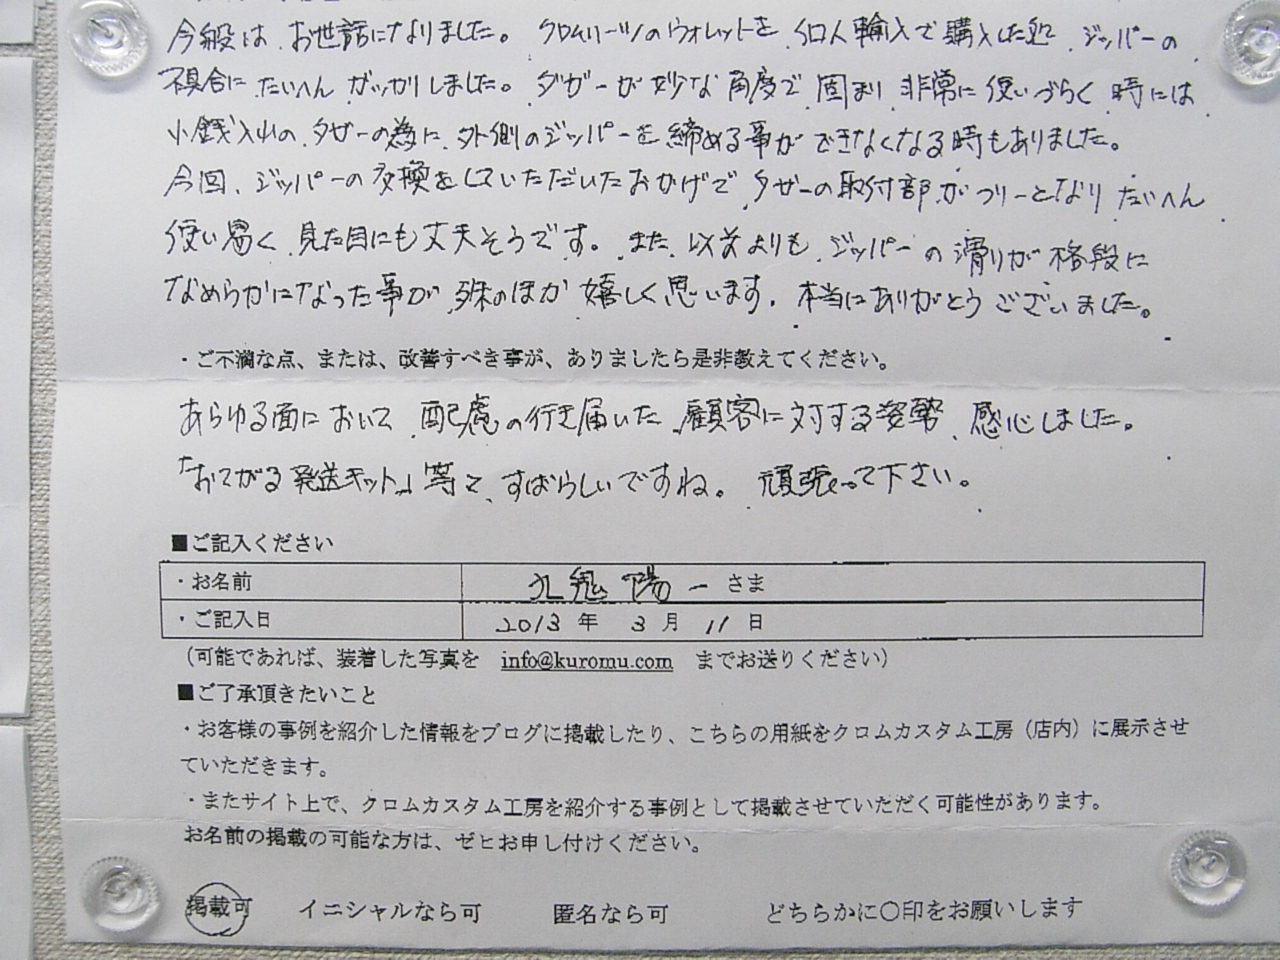 今般は、お世話になりました。クロムハーツのウォレットを、個人輸入で購入した処、ジッパーの
不具合に、たいへん ガッカリしました。ダガーが妙な角度で固まり、非常に使いづらく、時には
小銭入れの、タガーの為に、外側のジッパーを締める事ができなくなる時もありました。
今回、ジッパーの交換をしていただいたおかげで、タガーの取付部がフリーとなり、たいへん
使い易く、見た目にも丈夫そうです。また、以前よりも、ジッパーの滑りが格段に
なめらかになった事が、殊のほか嬉しく思います。本当にありがとうございました。
・ご不満な点、または、改善すべき事が、ありましたら是非教えてください。
あらゆる面において、配慮の行き届いた、顧客に対する姿勢、感心しました。
「おてがる発送キット」等々、すばらしいですね。頑張って下さい。
■ご記入ください
・お名前 九鬼 陽一 さま
・ご記入日 2013 年 3 月 11 日
（可能であれば、装着した写真を info@kuromu.com までお送りください）
■ご了承頂きたいこと
・お客様の事例を紹介した情報をブログに掲載したり、こちらの用紙をクロムカスタム工房（店内）に展示させ
ていただきます。
・またサイト上で、クロムカスタム工房を紹介する事例として掲載させていただく可能性があります。
お名前の掲載の可能な方は、ゼヒお申し付けください。
掲載可 イニシャルなら可 匿名なら可 どちらかに〇印をお願いします